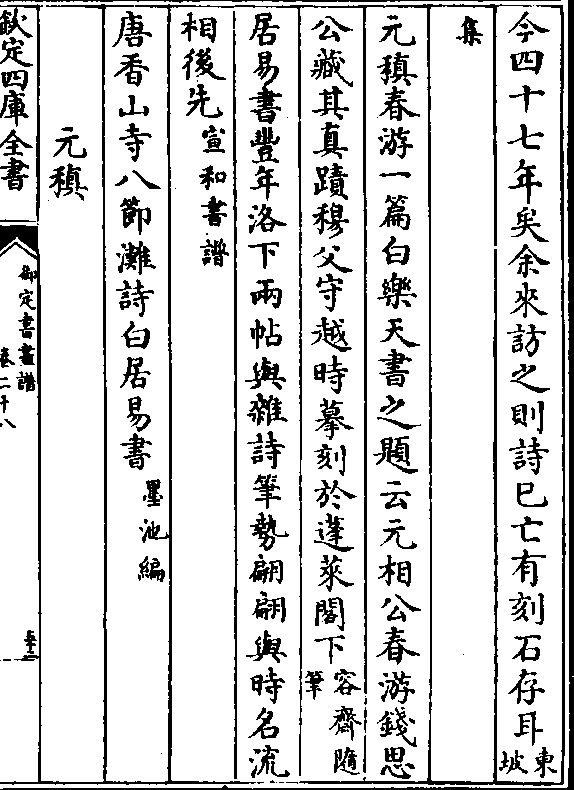 今四十七年矣余來訪之則詩已亡有刻石存耳東坡
集
元稹春游一篇白樂天書之題云元相公春游錢思
公藏其真蹟穆父守越時摹刻於蓬萊閣下容齋隨筆
居易書豐年洛下兩帖與雜詩筆勢翩翩與時名流
相後先宣和書譜
唐香山寺八節灘詩白居易書墨池編
元稹
欽定四庫全書
御定書畫譜
卷二十八